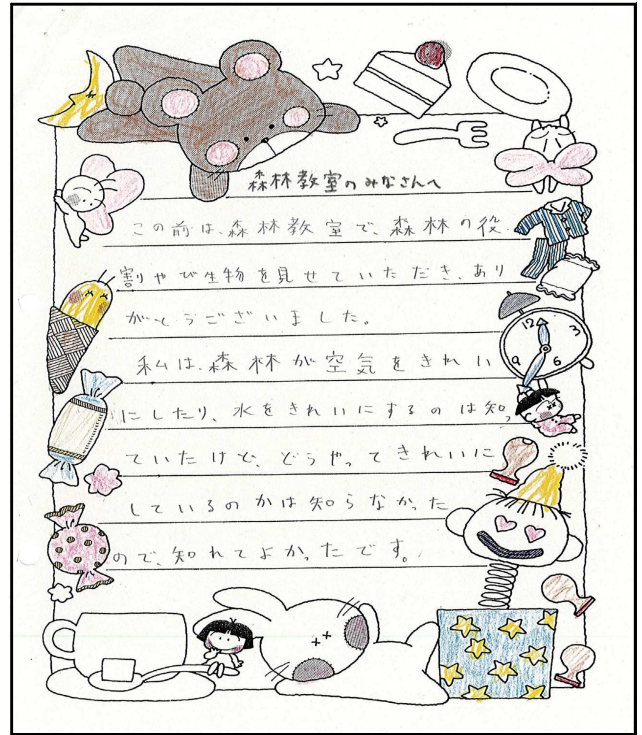 森林教室のみなさんへ
この前は、森林教室で、森林の役
割やび生物を見せていただき、あり
がとうございました。
私は、森林が空気をきれい
にしたり、水をきれいにするのは知っ
ていたけど、どうやってきれいに
しているのかは知らなかった
ので、知れてよかったです。
12
3
6
9